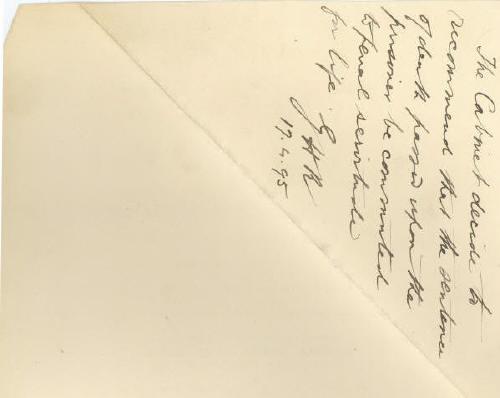 The Cabinet decide to
recommend that the sentence
of death passed upon the
prisoner be commuted
to penal servitude
for life.
G H R
17.4.95